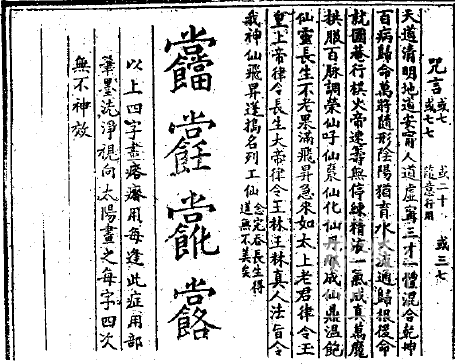 咒言 或七 或七七 或二十 随意行用 或三七
天道清明地道安甯人道虛寧三才一體混合乾坤
百病歸命萬將隨形陰陽猶育水火流通歸根復命
龍圖菴行棋火帝運籌無停煉精液一氣成真萬魔
拱服百脉調榮仙子仙裊仙化仙丹成仙鼎溫飽
仙靈長生不老果滿飛昇急來如太上老君律令玉
皇上帝律令長生大帝律令玉林王林真人法旨令
我神仙飛昇逢搗名列工仙 念完吞長生得道無不美矣
以上四字畫瘩療用每逢此症用部
筆墨洗淨視向太陽畫之每字四次
無不神效